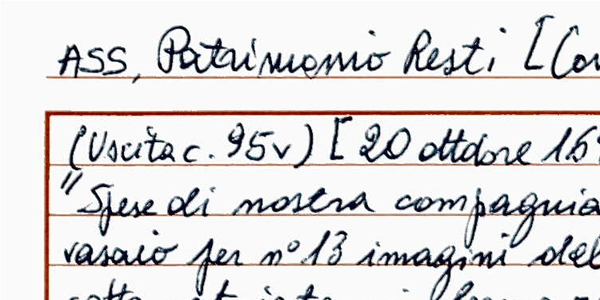 ASS, Patrimonio Resti [Co
(Uscita c. 95v) [20 ottobre 16
"Spese di nostra compagnia
vasaio per n° 13 imagini del